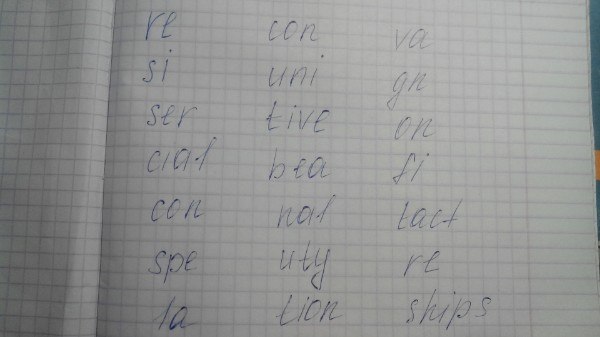 re con va
si uni gn
ser tive on
cial bea fi
con nal tact
spe uty re
la tion ships